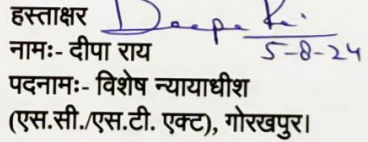 हस्ताक्षर Deepa Rai
5-8-24
नामः- दीपा राय
पदनामः- विशेष न्यायाधीश
(एस.सी./एस.टी. एक्ट), गोरखपुर।